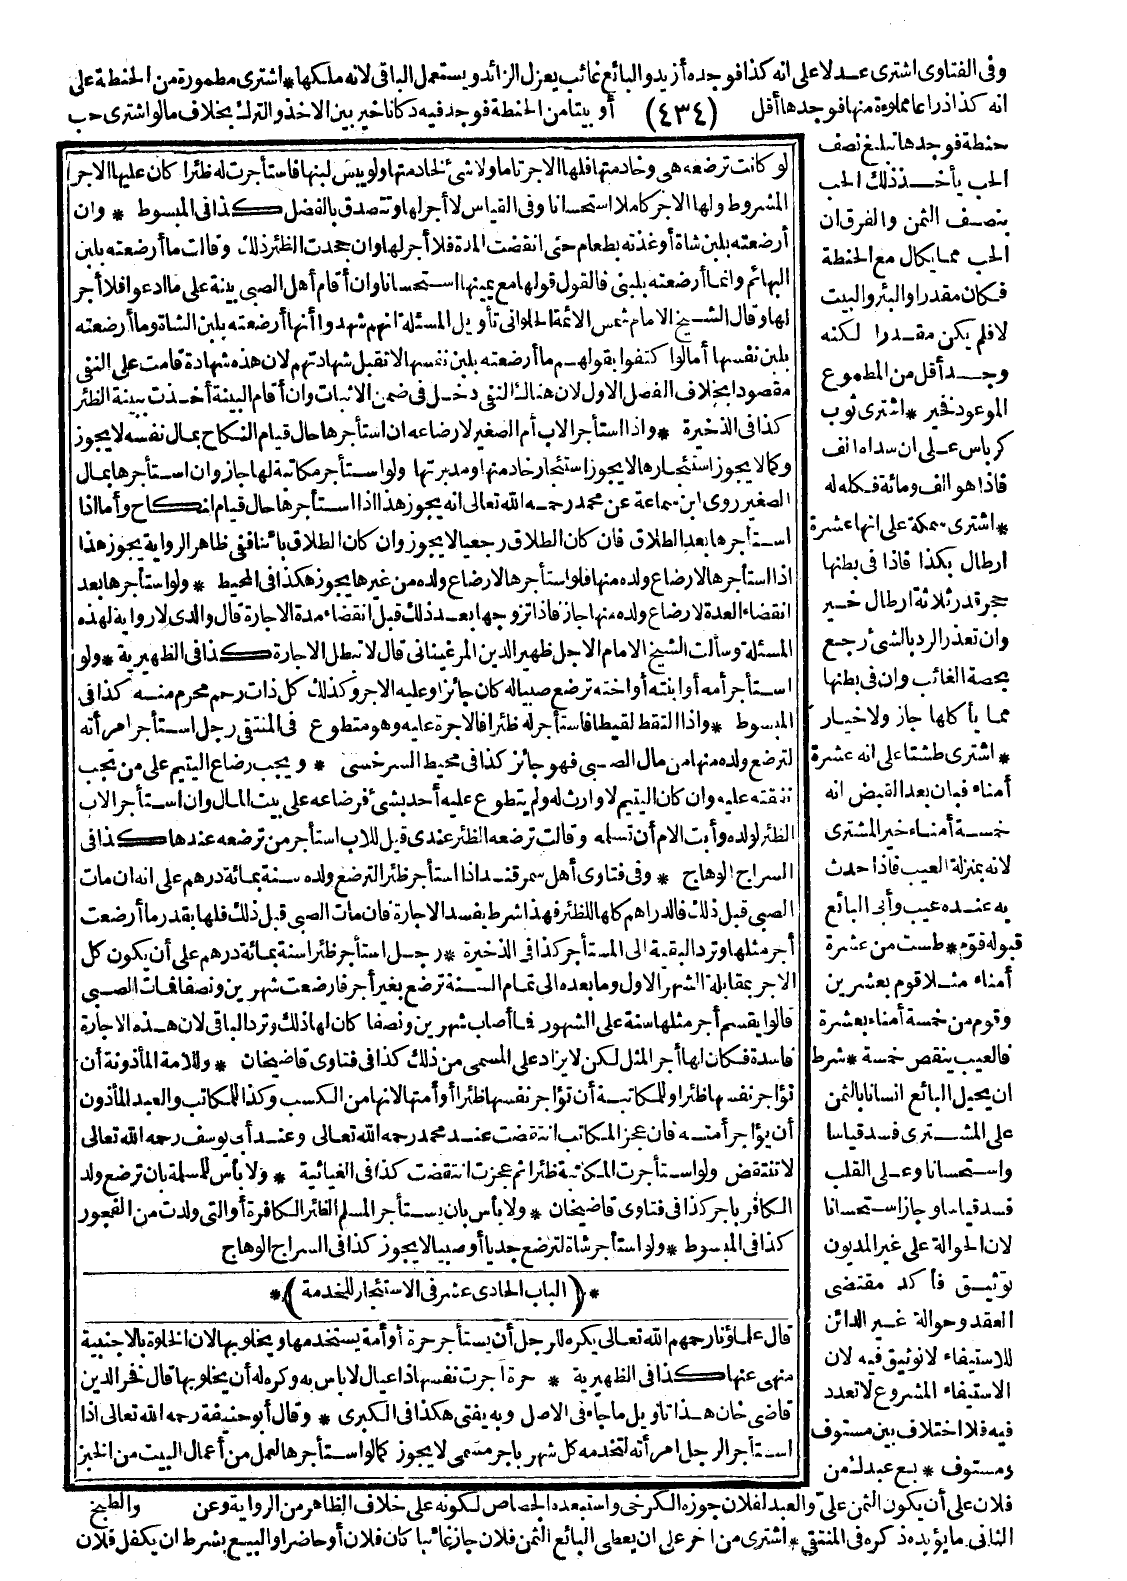 وفى الفتاوى اشترى عدلا على انه كذا فوجده أزيد والبائع غائب يعزل الزائد ويستعمل الباقى لانه ملكها * اشترى مطمورة من الحنطة على
انه كذا ذراعا مملوءة منها فوجدها أقل (٤٣٤) أو بيتا من الحنطة فوجد فيه دكانا خير بين الاخذ والترك بخلاف ما لو اشترى حب
حنطة فوجدها تبلغ نصف
الحب يأخذ ذلك الحب
بنصف الثمن والفرق ان
الحب مما يكال مع الحنطة
فكان مقدرا والبئر والبيت
لا فلم يكن مقدرا لكنه
وجد أقل من المطموع
الموعود فخير * اشترى ثوب
كرباس على ان سداه الف
فاذا هو الف ومائة فكله له
* اشترى سمكة على انها عشرة
ارطال بكذا فاذا فى بطنها
حجر قدر ثلاثة ارطال خير
وان تعذر الرد بالشئ رجع
بحصة الغائب وان فى بطنها
مما يأكلها جاز ولا خيار
* اشترى طشتا على انه عشرة
أمناء فبان بعد القبض انه
خمسة أمناء خير المشترى
لانه بمنزلة العيب فاذا حدث
به عنده عيب وأبى البائع
قبوله قوم * طست من عشرة
أمناء مثلا قوم بعشرين
وقوم من خمسة أمناء بعشرة
فالعيب ينقص خمسة * شرط
ان يحيل البائع انسانا بالثمن
على المشترى فسد قياسا
واستحسانا وعلى القلب
فسد قياسا وجاز استحسانا
لان الحوالة على غير المديون
توثيق فأكد مقتضى
العقد وحوالة غير الدائن
للاستيفاء لا توثيق فيه لان
الاستيفاء المشروع لا تعدد
فيه فلا اختلاف بين مستوف
ومستوف * بع عبدك من
لو كانت ترضعه هى وخادمتها فلها الاجر تاما ولا شئ لخادمتها ولو يبس لبنها فاستأجرت له ظئرا كان عليها الاجر
المشروط ولها الاجر كاملا استحسانا وفى القياس لا أجر لها وتتصدق بالفضل كذا فى المبسوط * وان
أرضعته بلبن شاة أو غذته بطعام حتى انقضت المدة فلا أجر لها وان جحدت الظئر ذلك وقالت ما أرضعته بلبن
البهائم وانما أرضعته بلبنى فالقول قولها مع يمينها استحسانا وان أقام أهل الصبى بينة على ما ادعوا فلا أجر
لها وقال الشيخ الامام شمس الائمة الحلوانى تأويل المسئلة انهم شهدوا أنها أرضعته بلبن الشاة وما أرضعته
بلبن نفسها أما لو اكتفوا بقولهم ما أرضعته بلبن نفسها لا تقبل شهادتهم لان هذه شهادة قامت على النفى
مقصودا بخلاف الفصل الاول لان هناك النفى دخل فى ضمن الاثبات وان أقام البينة أخذت ببينة الظئر
كذا فى الذخيرة * واذا استأجر الاب أم الصغير لارضاعه ان استأجرها حال قيام النكاح بمال نفسه لا يجوز
وكما لا يجوز استئجارها لا يجوز استئجار خادمتها ومدبرتها ولو استأجر مكاتبة لها جاز وان استأجرها بمال
الصغير روى ابن سماعة عن محمد رحمه الله تعالى انه يجوز هذا اذا استأجرها حال قيام النكاح وأما اذا
استأجرها بعد الطلاق فان كان الطلاق رجعيا لا يجوز وان كان الطلاق بائنا ففى ظاهر الرواية يجوز هذا
اذا استأجرها لارضاع ولده منها فلو استأجرها لارضاع ولده من غيرها يجوز هكذا فى المحيط * ولو استأجرها بعد
انقضاء العدة لارضاع ولده منها جاز فاذا تزوجها بعد ذلك قبل انقضاء مدة الاجارة قال والدى لا رواية لهذه
المسئلة وسألت الشيخ الامام الاجل ظهير الدين المرغينانى قال لا تبطل الاجارة كذا فى الظهيرية * ولو
استأجر أمه أو ابنته أو اخته ترضع صبيا له كان جائزا وعليه الاجر وكذلك كل ذات رحم محرم منه كذا فى
المبسوط * واذا التقط لقيطا فاستأجر له ظئرا فالاجرة عليه وهو متطوع فى المنتقى رجل استأجر امرأته
لترضع ولده منها من مال الصبى فهو جائز كذا فى محيط السرخسى * ويجب رضاع اليتيم على من يجب
نفقته عليه وان كان اليتيم لا وارث له ولم يتطوع عليه أحد بشئ فرضاعه على بيت المال وان استأجر الاب
الظئر لولده وأبت الام أن تسلمه وقالت ترضعه الظئر عندى قيل للاب استأجر من ترضعه عندها كذا فى
السراج الوهاج * وفى فتاوى أهل سمرقند اذا استأجر ظئرا لترضع ولده سنة بمائة درهم على انه ان مات
الصبى قبل ذلك فالدراهم كلها للظئر فهذا شرط يفسد الاجارة فان مات الصبى قبل ذلك فلها بقدر ما أرضعت
أجر مثلها وترد البقية الى المستأجر كذا فى الذخيرة * رجل استأجر ظئرا سنة بمائة درهم على أن يكون كل
الاجر بمقابلة الشهر الاول وما بعده الى تمام السنة ترضع بغير أجر فارضعت شهرين ونصفا فمات الصبى
قالوا يقسم أجر مثلها سنة على الشهور فما أصاب شهرين ونصفا كان لها ذلك وترد الباقى لان هذه الاجارة
فاسدة فكان لها أجر المثل لكن لا يزاد على المسمى من ذلك كذا فى فتاوى قاضيخان * وللامة المأذونة أن
تؤاجر نفسها ظئرا وللمكاتبة أن تؤاجر نفسها ظئرا أو أمتها لانها من الكسب وكذا للمكاتب والعبد المأذون
أن يؤاجر أمته فان عجز المكاتب انتقضت عند محمد رحمه الله تعالى وعند أبى يوسف رحمه الله تعالى
لا تنتقض ولو استأجرت المكاتبة ظئرا ثم عجزت انتقضت كذا فى الغياثية * ولا بأس للمسلمة بان ترضع ولد
الكافر باجر كذا فى فتاوى قاضيخان * ولا بأس بان يستأجر المسلم الظئر الكافرة أو التى ولدت من الفجور
كذا فى المبسوط * ولو استأجر شاة لترضع جديا أو صبيا لا يجوز كذا فى السراج الوهاج
* (الباب الحادى عشر فى الاستئجار للخدمة) *
قال علماؤنا رحمهم الله تعالى يكره للرجل أن يستأجر حرة أو أمة يستخدمها ويخلو بها لان الخلوة بالاجنبية
منهى عنها كذا فى الظهيرية * حرة آجرت نفسها ذا عيال لا باس به وكره له أن يخلو بها قال فخر الدين
قاضى خان هذا تأويل ما جاء فى الاصل وبه يفتى هكذا فى الكبرى * وقال أبو حنيفة رحمه الله تعالى اذا
استأجر الرجل امرأته لتخدمه كل شهر باجر مسمى لا يجوز كما لو استأجرها لعمل من أعمال البيت من الخبز
والطبخ
فلان على أن يكون الثمن علىّ والعبد لفلان جوزه الكرخى واستبعده الجصاص لكونه على خلاف الظاهر من الرواية وعن
الثانى ما يؤيده ذكره فى المنتقى * اشترى من اخر على ان يعطى البائع الثمن فلان جاز غائبا كان فلان أو حاضرا والبيع بشرط ان يكفل فلان